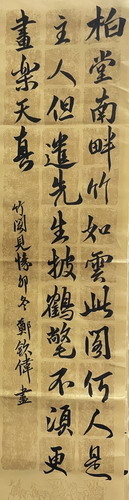 柏堂南畔竹如雲此閣何人是
主人但遣先生披鶴氅不須更
畫樂天真
竹閣見憶卯冬鄭欽偉書